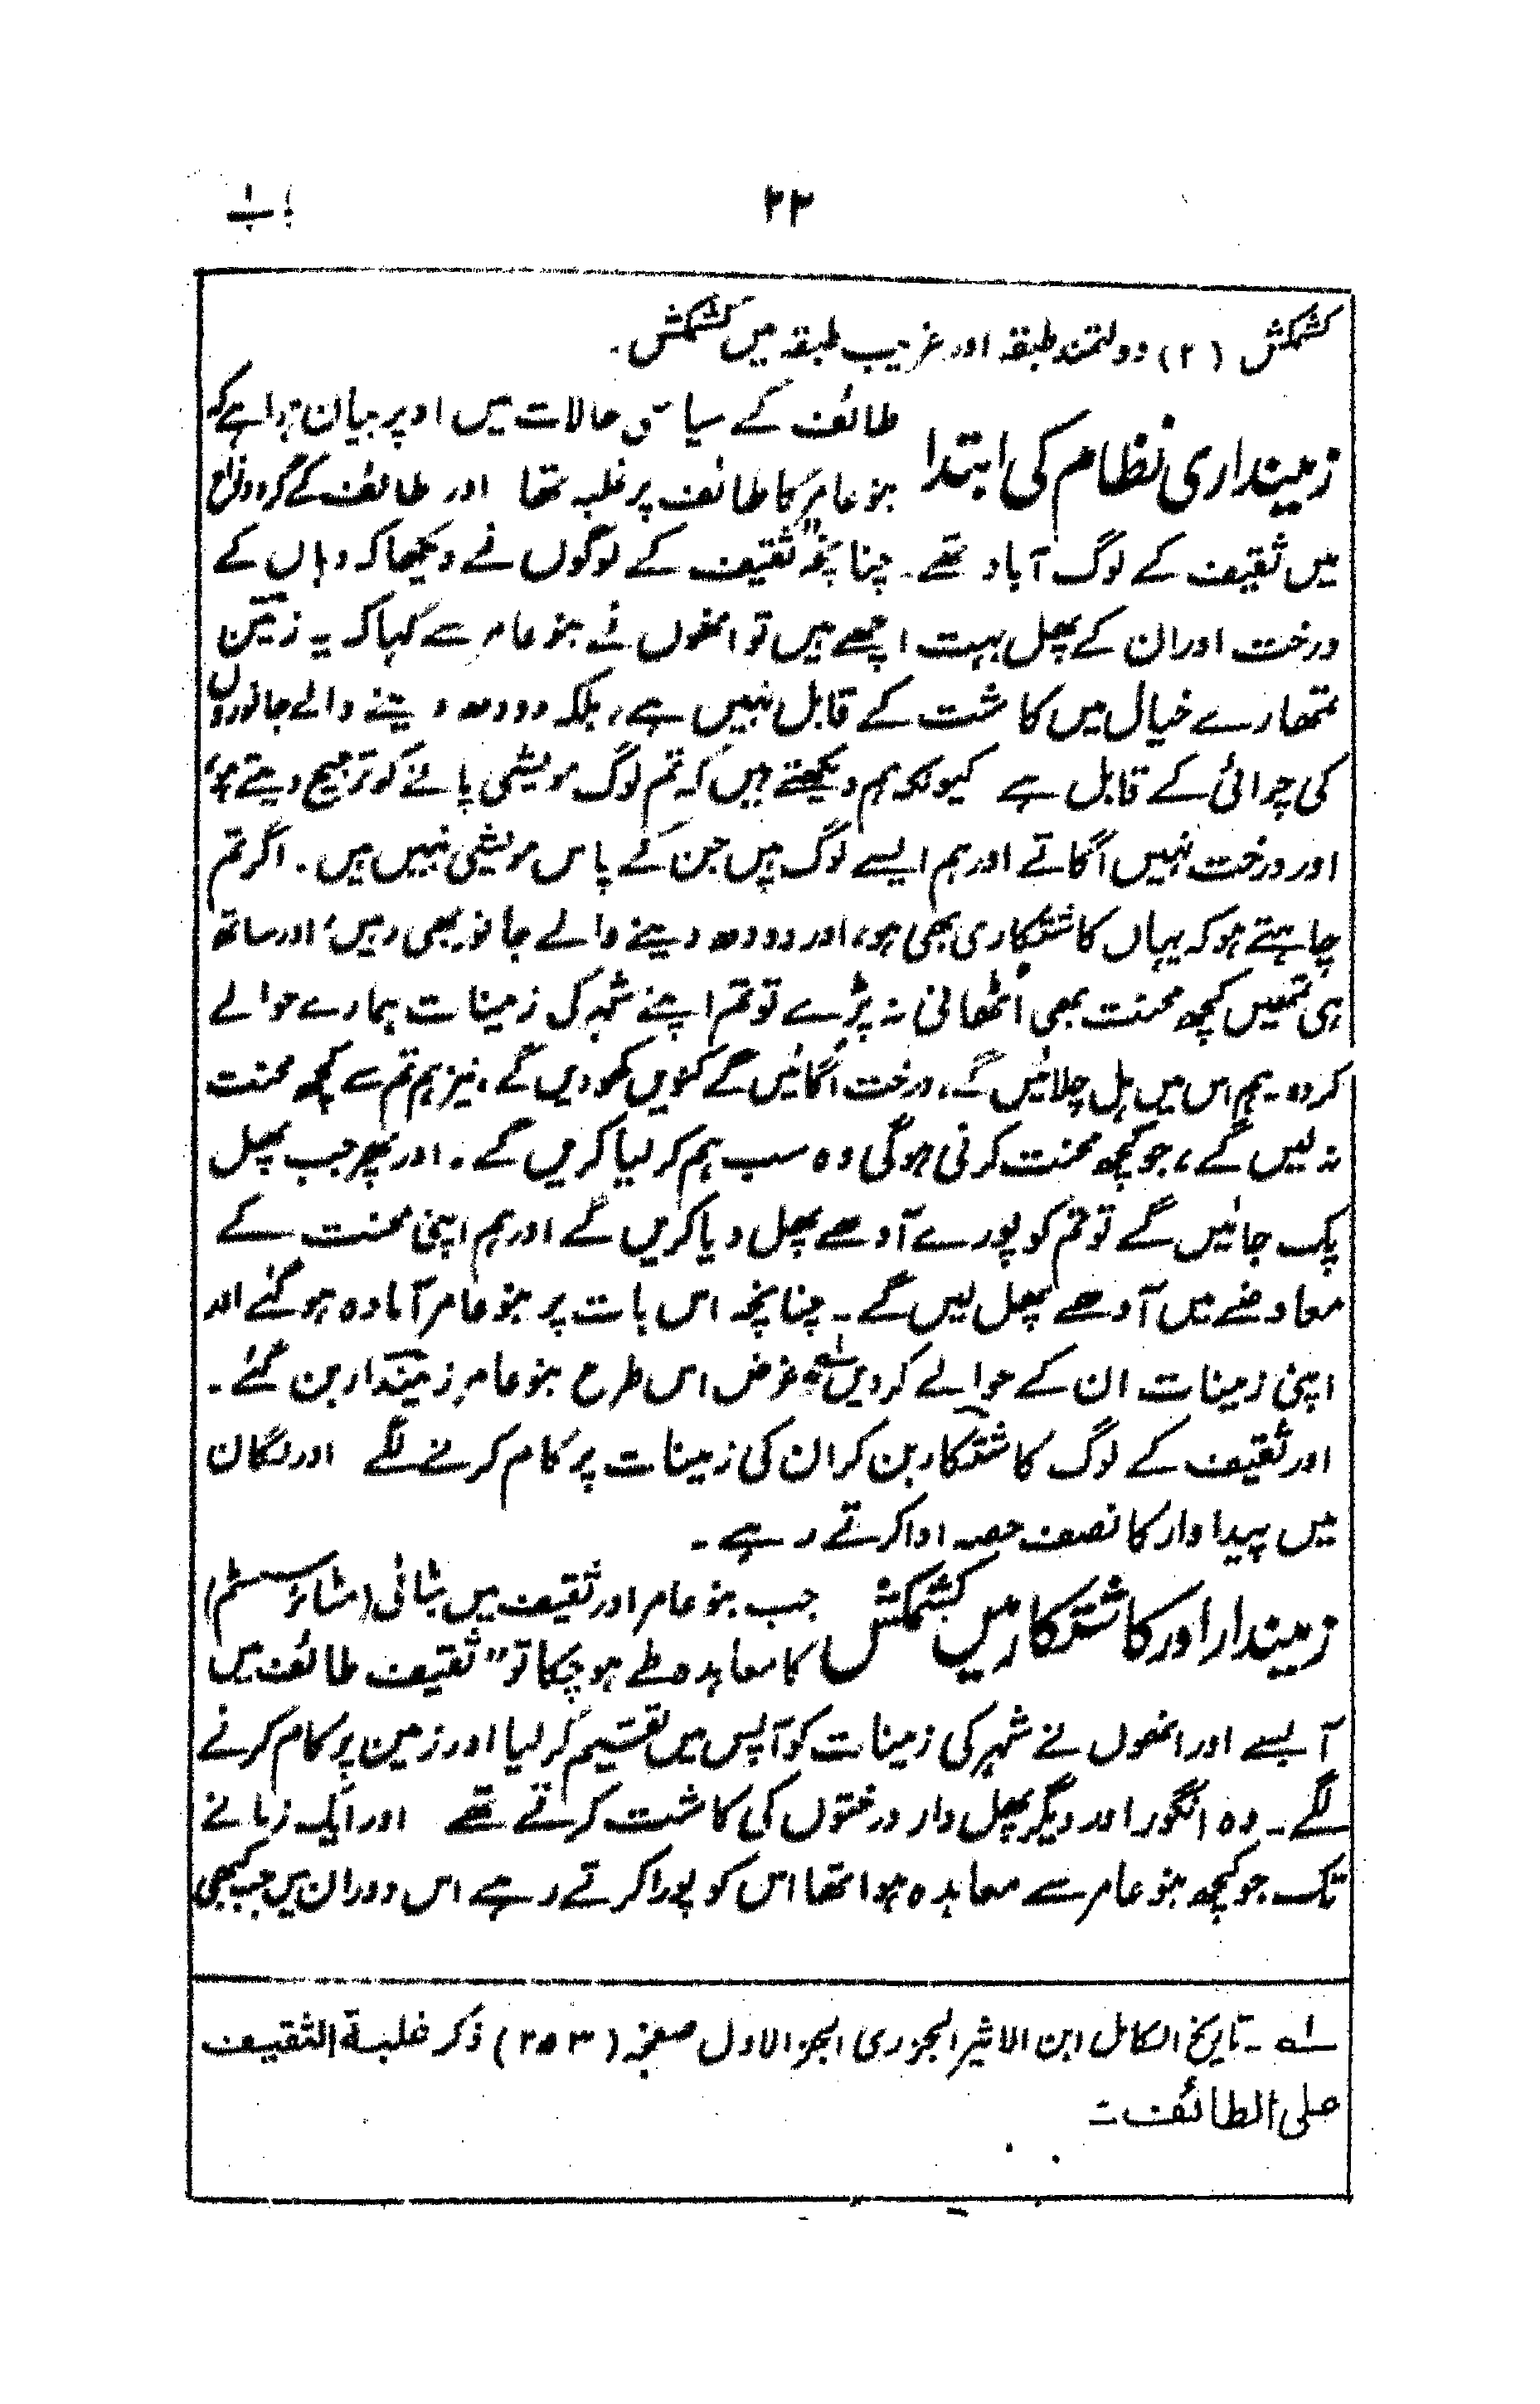 ۲۲ باب ۱
کشمکش (۲) دولتمند طبقہ اور غریب طبقہ میں کشمکش۔
زمینداری نظام کی ابتدا
طائف کے سیاسی حالات میں اوپر بیان ہوا ہے کہ
بنو عامر کا طائف پر غلبہ تھا اور طائف کے گرد و نواح
میں ثقیف کے لوگ آباد تھے۔ چنانچہ "ثقیف کے لوگوں نے دیکھا کہ وہاں کے
درخت اور ان کے پھل بہت اچھے ہیں تو انھوں نے بنو عامر سے کہا کہ یہ زمین
تمھارے خیال میں کاشت کے قابل نہیں ہے، بلکہ دودھ دینے والے جانوروں
کی چرائی کے قابل ہے کیونکہ ہم دیکھتے ہیں کہ تم لوگ مویشی پالنے کو ترجیح دیتے ہو،
اور درخت نہیں اگاتے اور ہم ایسے لوگ ہیں جن کے پاس مویشی نہیں ہیں۔ اگر تم
چاہتے ہو کہ یہاں کاشتکاری بھی ہو، اور دودھ دینے والے جانور بھی رہیں، اور ساتھ
ہی تمھیں کچھ محنت بھی اُٹھانی نہ پڑے تو تم اپنے شہر کی زمینات ہمارے حوالے
کردو۔ ہم اس میں ہل چلائیں گے، درخت اُگائیں گے کنویں کھودیں گے، نیز ہم تم سے کچھ محنت
نہ لیں گے، جو کچھ محنت کرنی ہوگی وہ سب ہم کر لیا کریں گے۔ اور پھر جب پھل
پک جائیں گے تو تم کو پورے آدھے پھل دیا کریں گے اور ہم اپنی محنت کے
معاوضے میں آدھے پھل لیں گے۔ چنانچہ اس بات پر بنو عامر آمادہ ہو گئے اور
اپنی زمینات ان کے حوالے کردیں" ؎۱ غرض اس طرح بنو عامر زمیندار بن گئے۔
اور ثقیف کے لوگ کاشتکار بن کر ان کی زمینات پر کام کرنے لگے اور لگان
میں پیداوار کا نصف حصہ ادا کرتے رہے۔
زمیندار اور کاشتکار میں کشمکش
جب بنو عامر اور ثقیف میں بٹائی (مٹائر سسٹم)
کا معاہدہ طے ہو چکا تو "ثقیف طائف میں
آ بسے اور انھوں نے شہر کی زمینات کو آپس میں تقسیم کر لیا اور زمین پر کام کرنے
لگے۔ وہ انگور اور دیگر پھل دار درختوں کی کاشت کرتے تھے اور ایک زمانے
تک جو کچھ بنو عامر سے معاہدہ ہوا تھا اس کو پورا کرتے رہے اس دوران میں جب کبھی
؎۱۔ تاریخ الکامل ابن الاثیر الجزری الجز الاول صفحہ (۲۵۳) ذکر غلبۃ الثقیف
علی الطائف۔